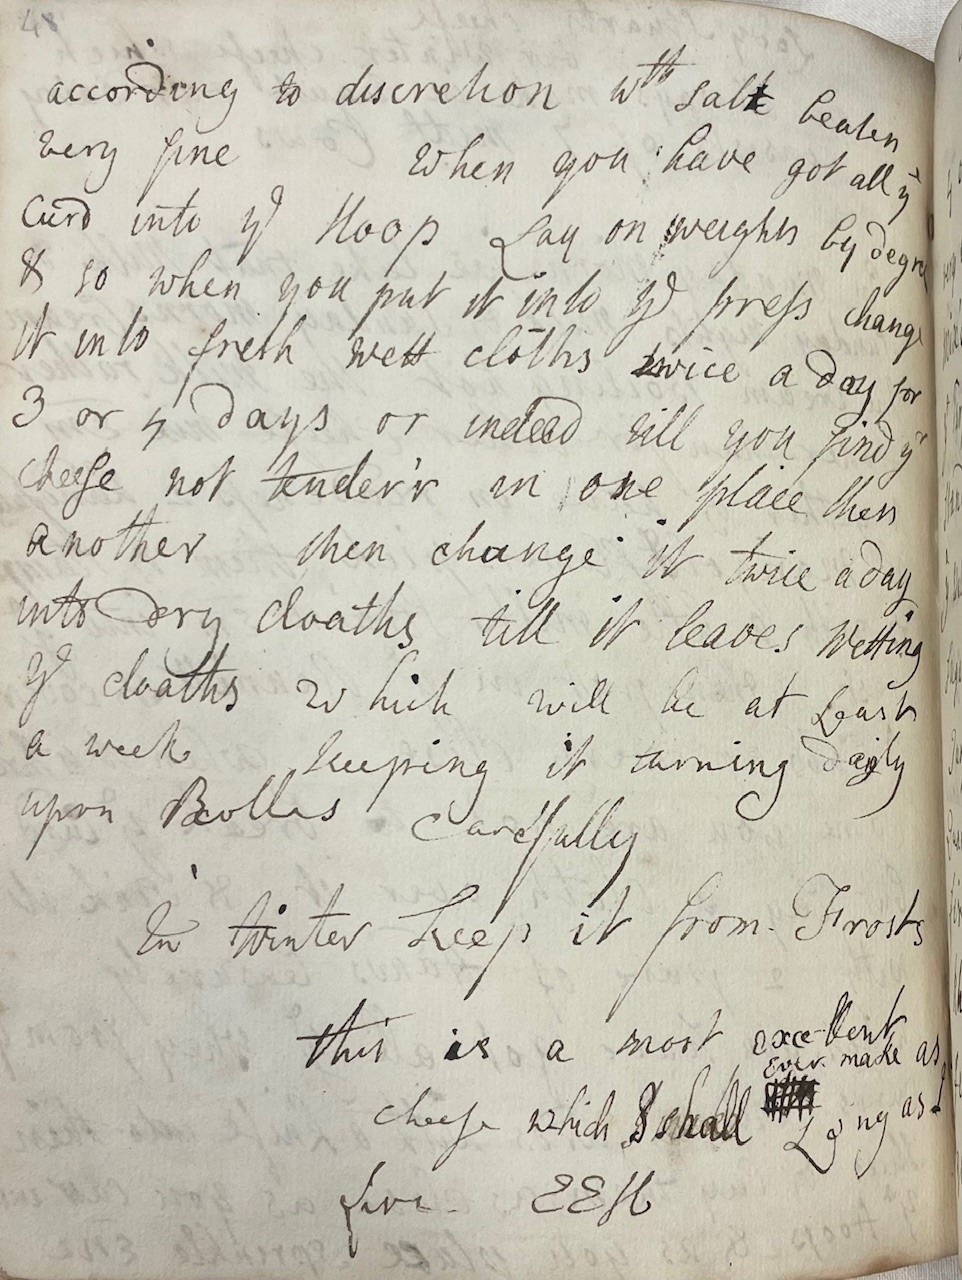 48
according to discretion wth salt beaten
very fine when you have got all ye
Curd into ye Hoop Lay on weights by degre
& so when you put it into ye press change
it into fresh wett cloths twice a day for
3 or 4 days or indeed till you find ye
cheese not tender'r in one place then
another then change it twice a day
into dry cloaths till it leaves Wetting
ye cloaths which will be at Least
a week keeping it turning daily
upon carefully
In Winter keep it from Frosts
this is a most excellent
ever make as
cheese which I shall Long as I
live. EEH